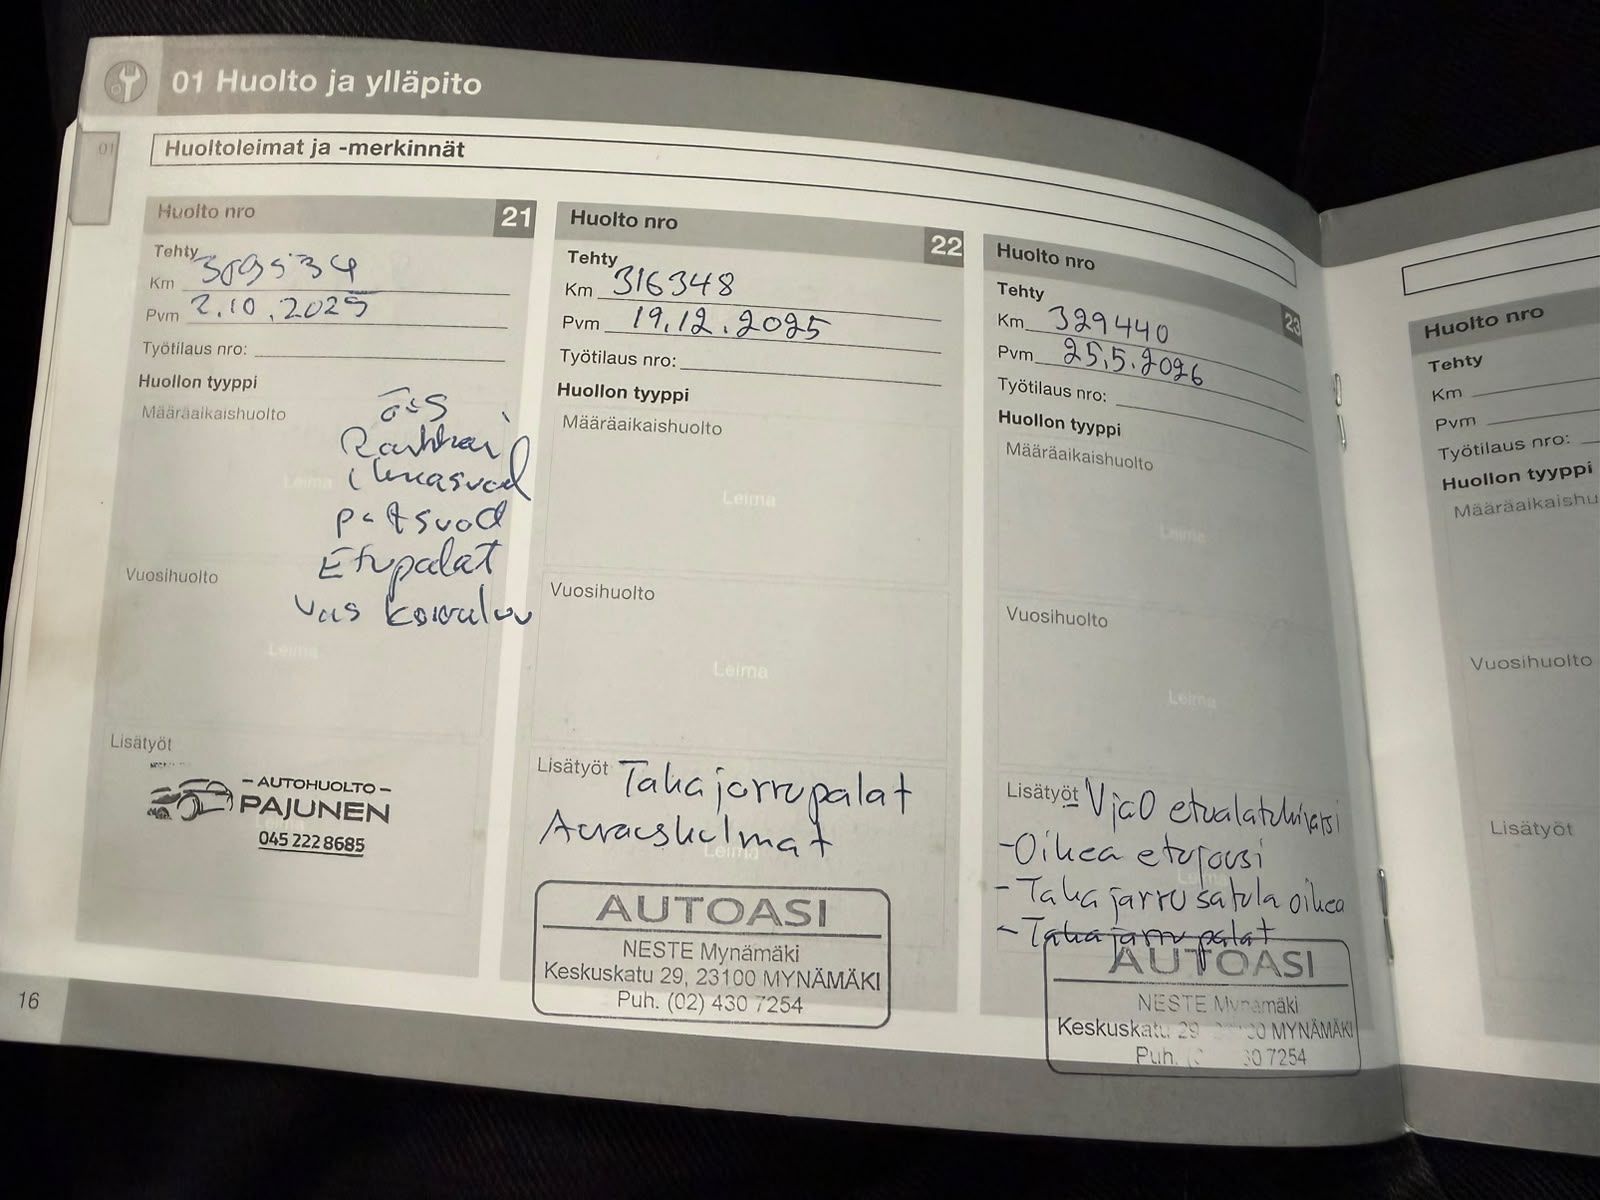 01 Huolto ja ylläpito
01
Huoltoleimat ja -merkinnät
Huolto nro 21
Tehty
Km 309534
Pvm 2.10.2025
Työtilaus nro:
Huollon tyyppi
Määräaikaishuolto
ö+S
Raitisi
ilmasuod
Leima
p-tsuod
Etupalat
Vuosihuolto
vas
Leima
Lisätyöt
- AUTOHUOLTO -
PAJUNEN
045 222 8685
16
Huolto nro 22
Tehty
Km 316348
Pvm 19.12.2025
Työtilaus nro:
Huollon tyyppi
Määräaikaishuolto
Leima
Vuosihuolto
Leima
Lisätyöt Takajarrupalat
Auraeskelmat
Leima
AUTOASI
NESTE Mynämäki
Keskuskatu 29, 23100 MYNÄMÄKI
Puh. (02) 430 7254
Huolto nro 23
Tehty
Km 329440
Pvm 25.5.2026
Työtilaus nro:
Huollon tyyppi
Määräaikaishuolto
Leima
Vuosihuolto
Leima
Lisätyöt VjaO etualatukivarsi
-Oikea etujousi
- Takajarrusatula oikea
- Takajarrupalat
AUTOASI
NESTE Mynämäki
Keskuskatu 29 MYNÄMÄKI
Puh. 30 7254
Huolto nro
Tehty
Km
Pvm
Työtilaus nro:
Huollon tyyppi
Määräaikaishu
Vuosihuolto
Lisätyöt